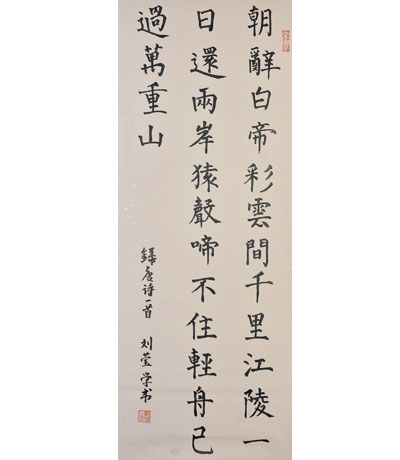 朝辭白帝彩雲間千里江陵一
日還兩岸猿聲啼不住輕舟已
過萬重山
錄唐诗一首 刘莹学书